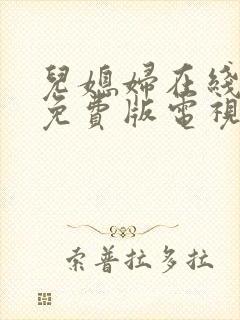 兒媳婦在綫
免費版電視
索普拉多拉